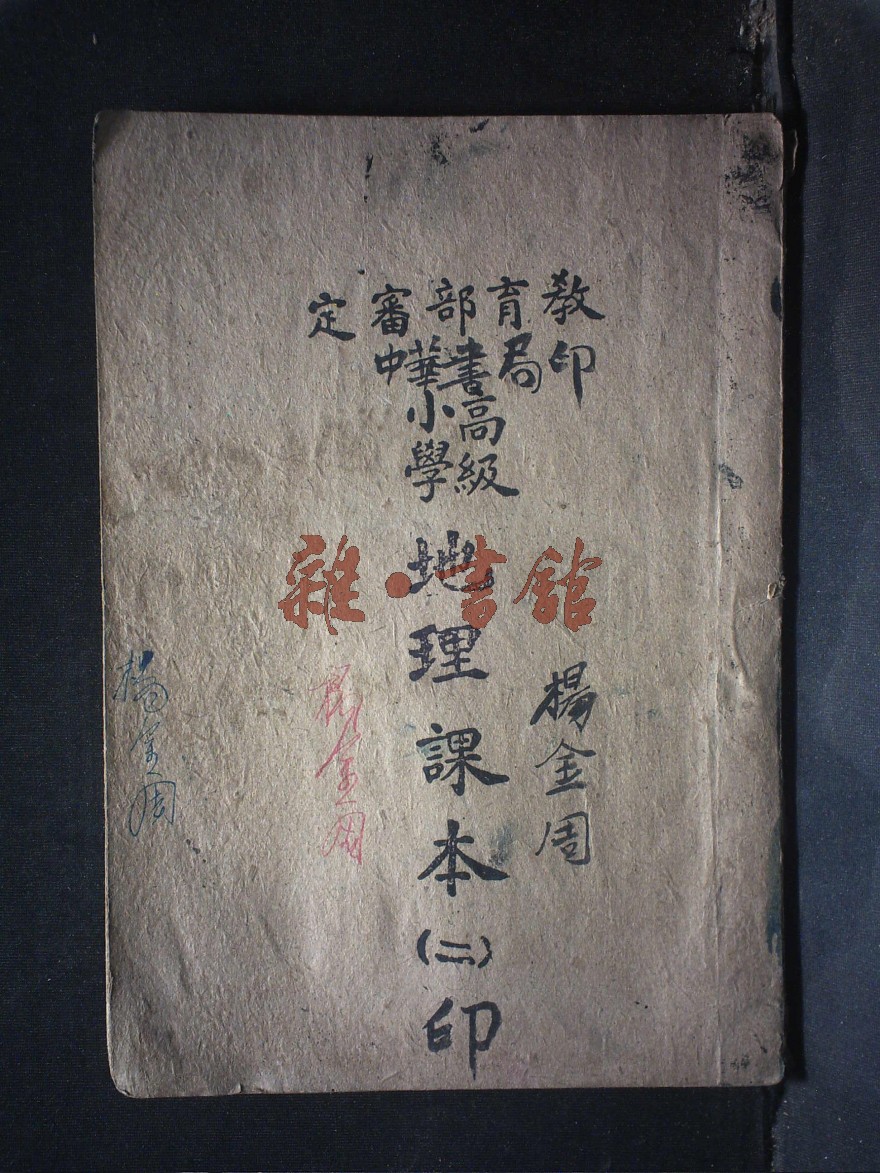 教育部審定
中華書局印
高級
小學
地理課本(二)印
楊金周
楊金周
楊金周
雜·書館